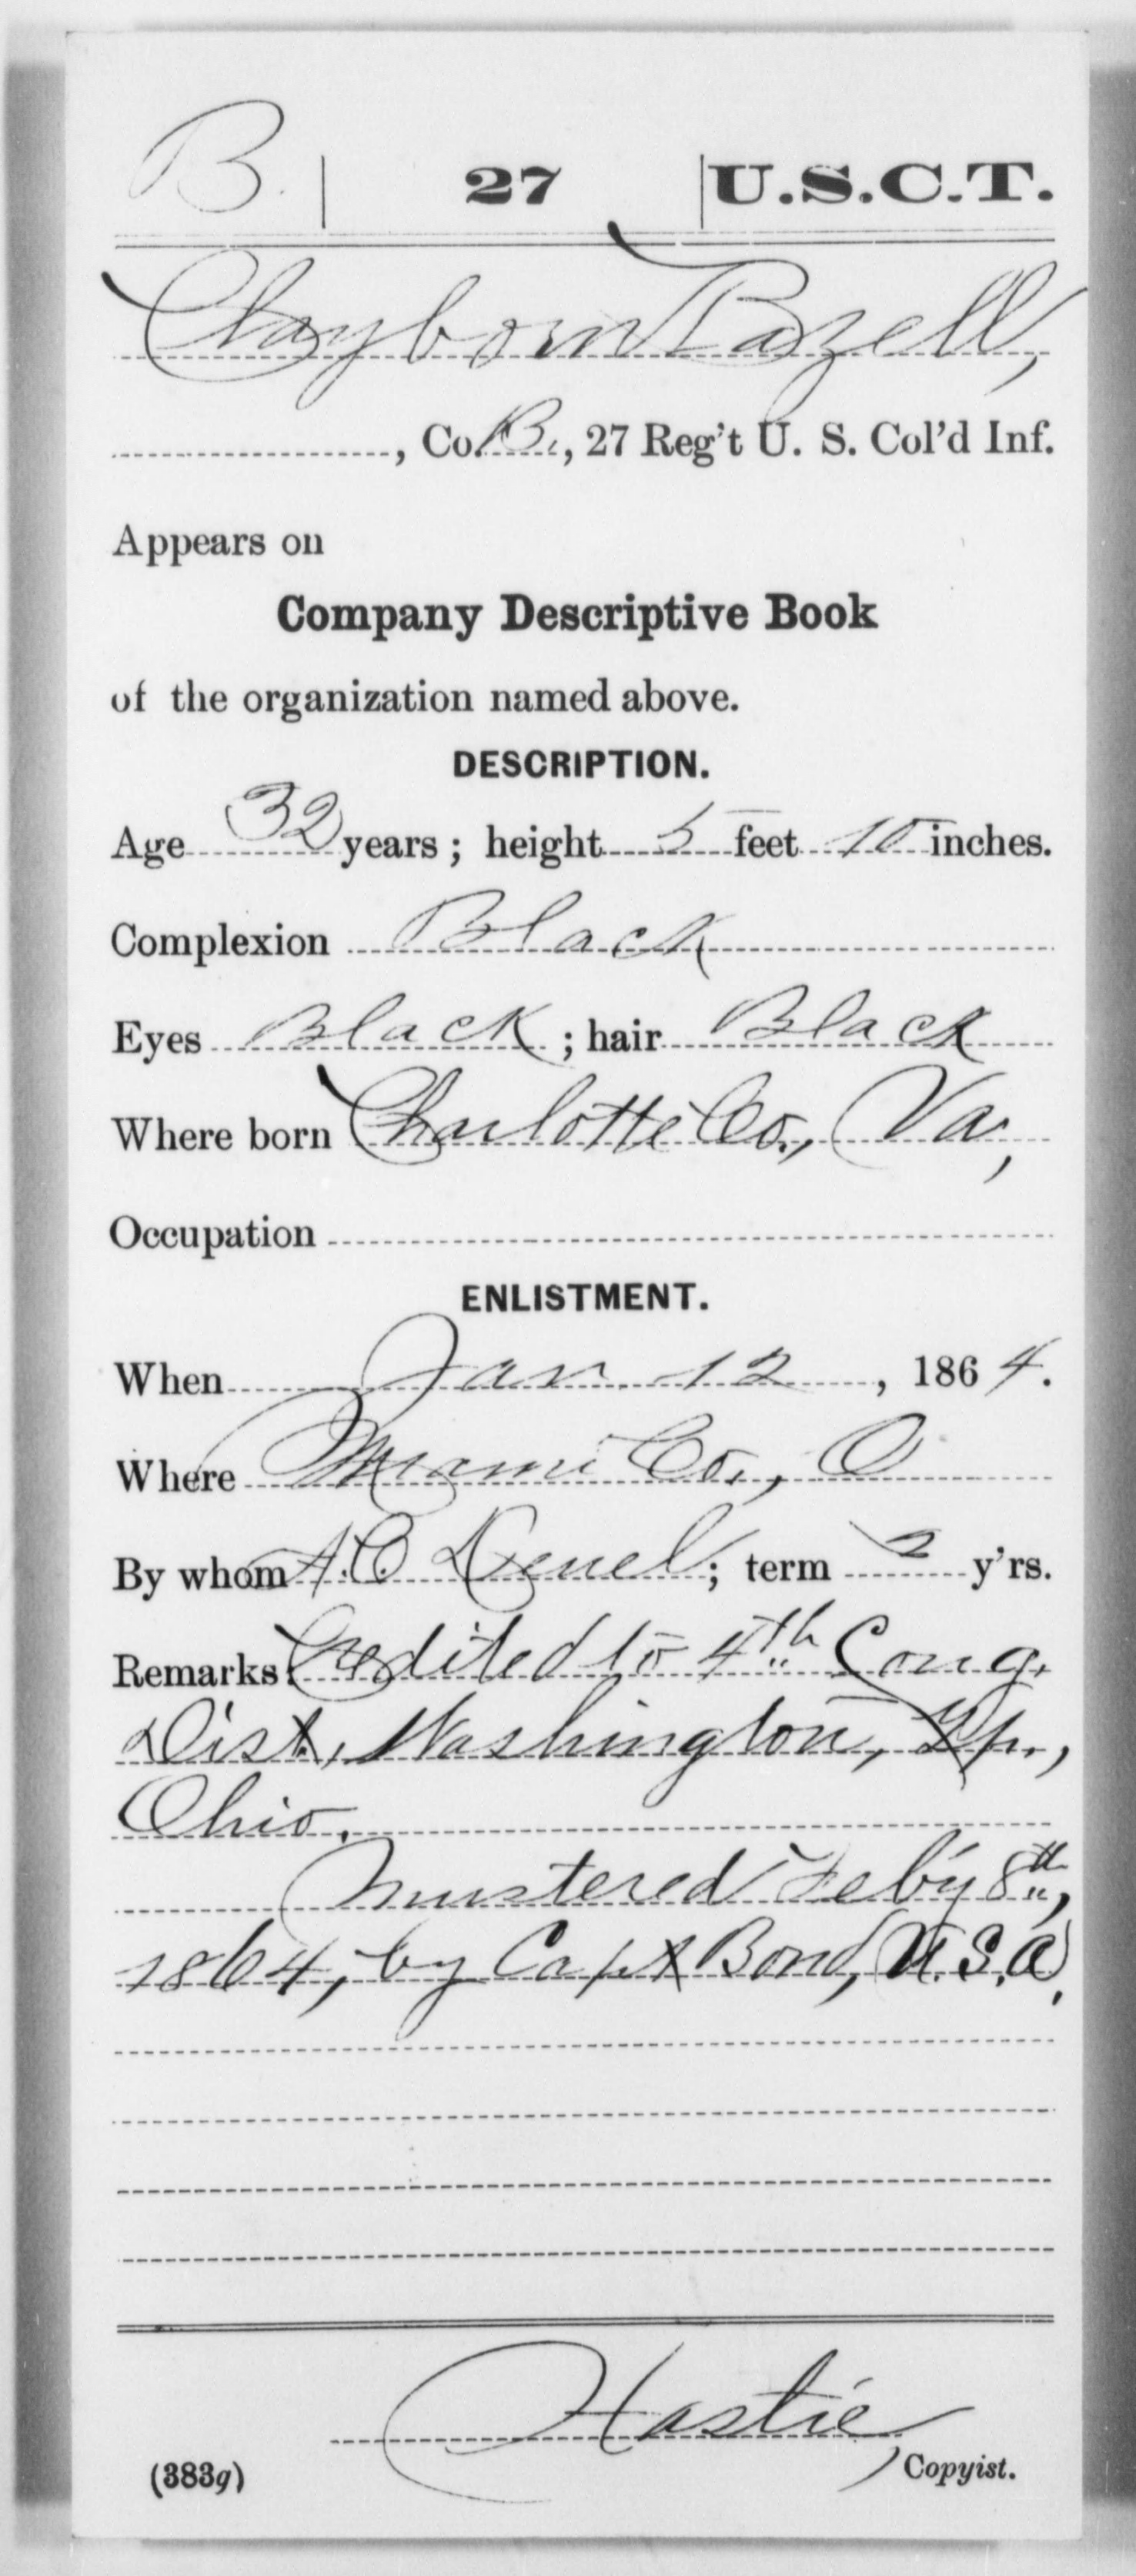 B. | 27 | U.S.C.T.
Clayborn Bazell,
, Co. B., 27 Reg't U. S. Col'd Inf.
Appears on
Company Descriptive Book
of the organization named above.
DESCRIPTION.
Age 32 years; height 5 feet 10 inches.
Complexion Black
Eyes Black; hair Black
Where born Charlotte Co., Va,
Occupation
ENLISTMENT.
When Jan. 12, 1864.
Where Miami Co., O
By whom A.C. Deuel; term y'rs.
Remarks: Credited to 4th Cong.
Dist., Washington, Tp.,
Ohio.
Mustered Feby 8th,
1864, by Capt Bond, U.S.A,
Hastie
(383g) Copyist.